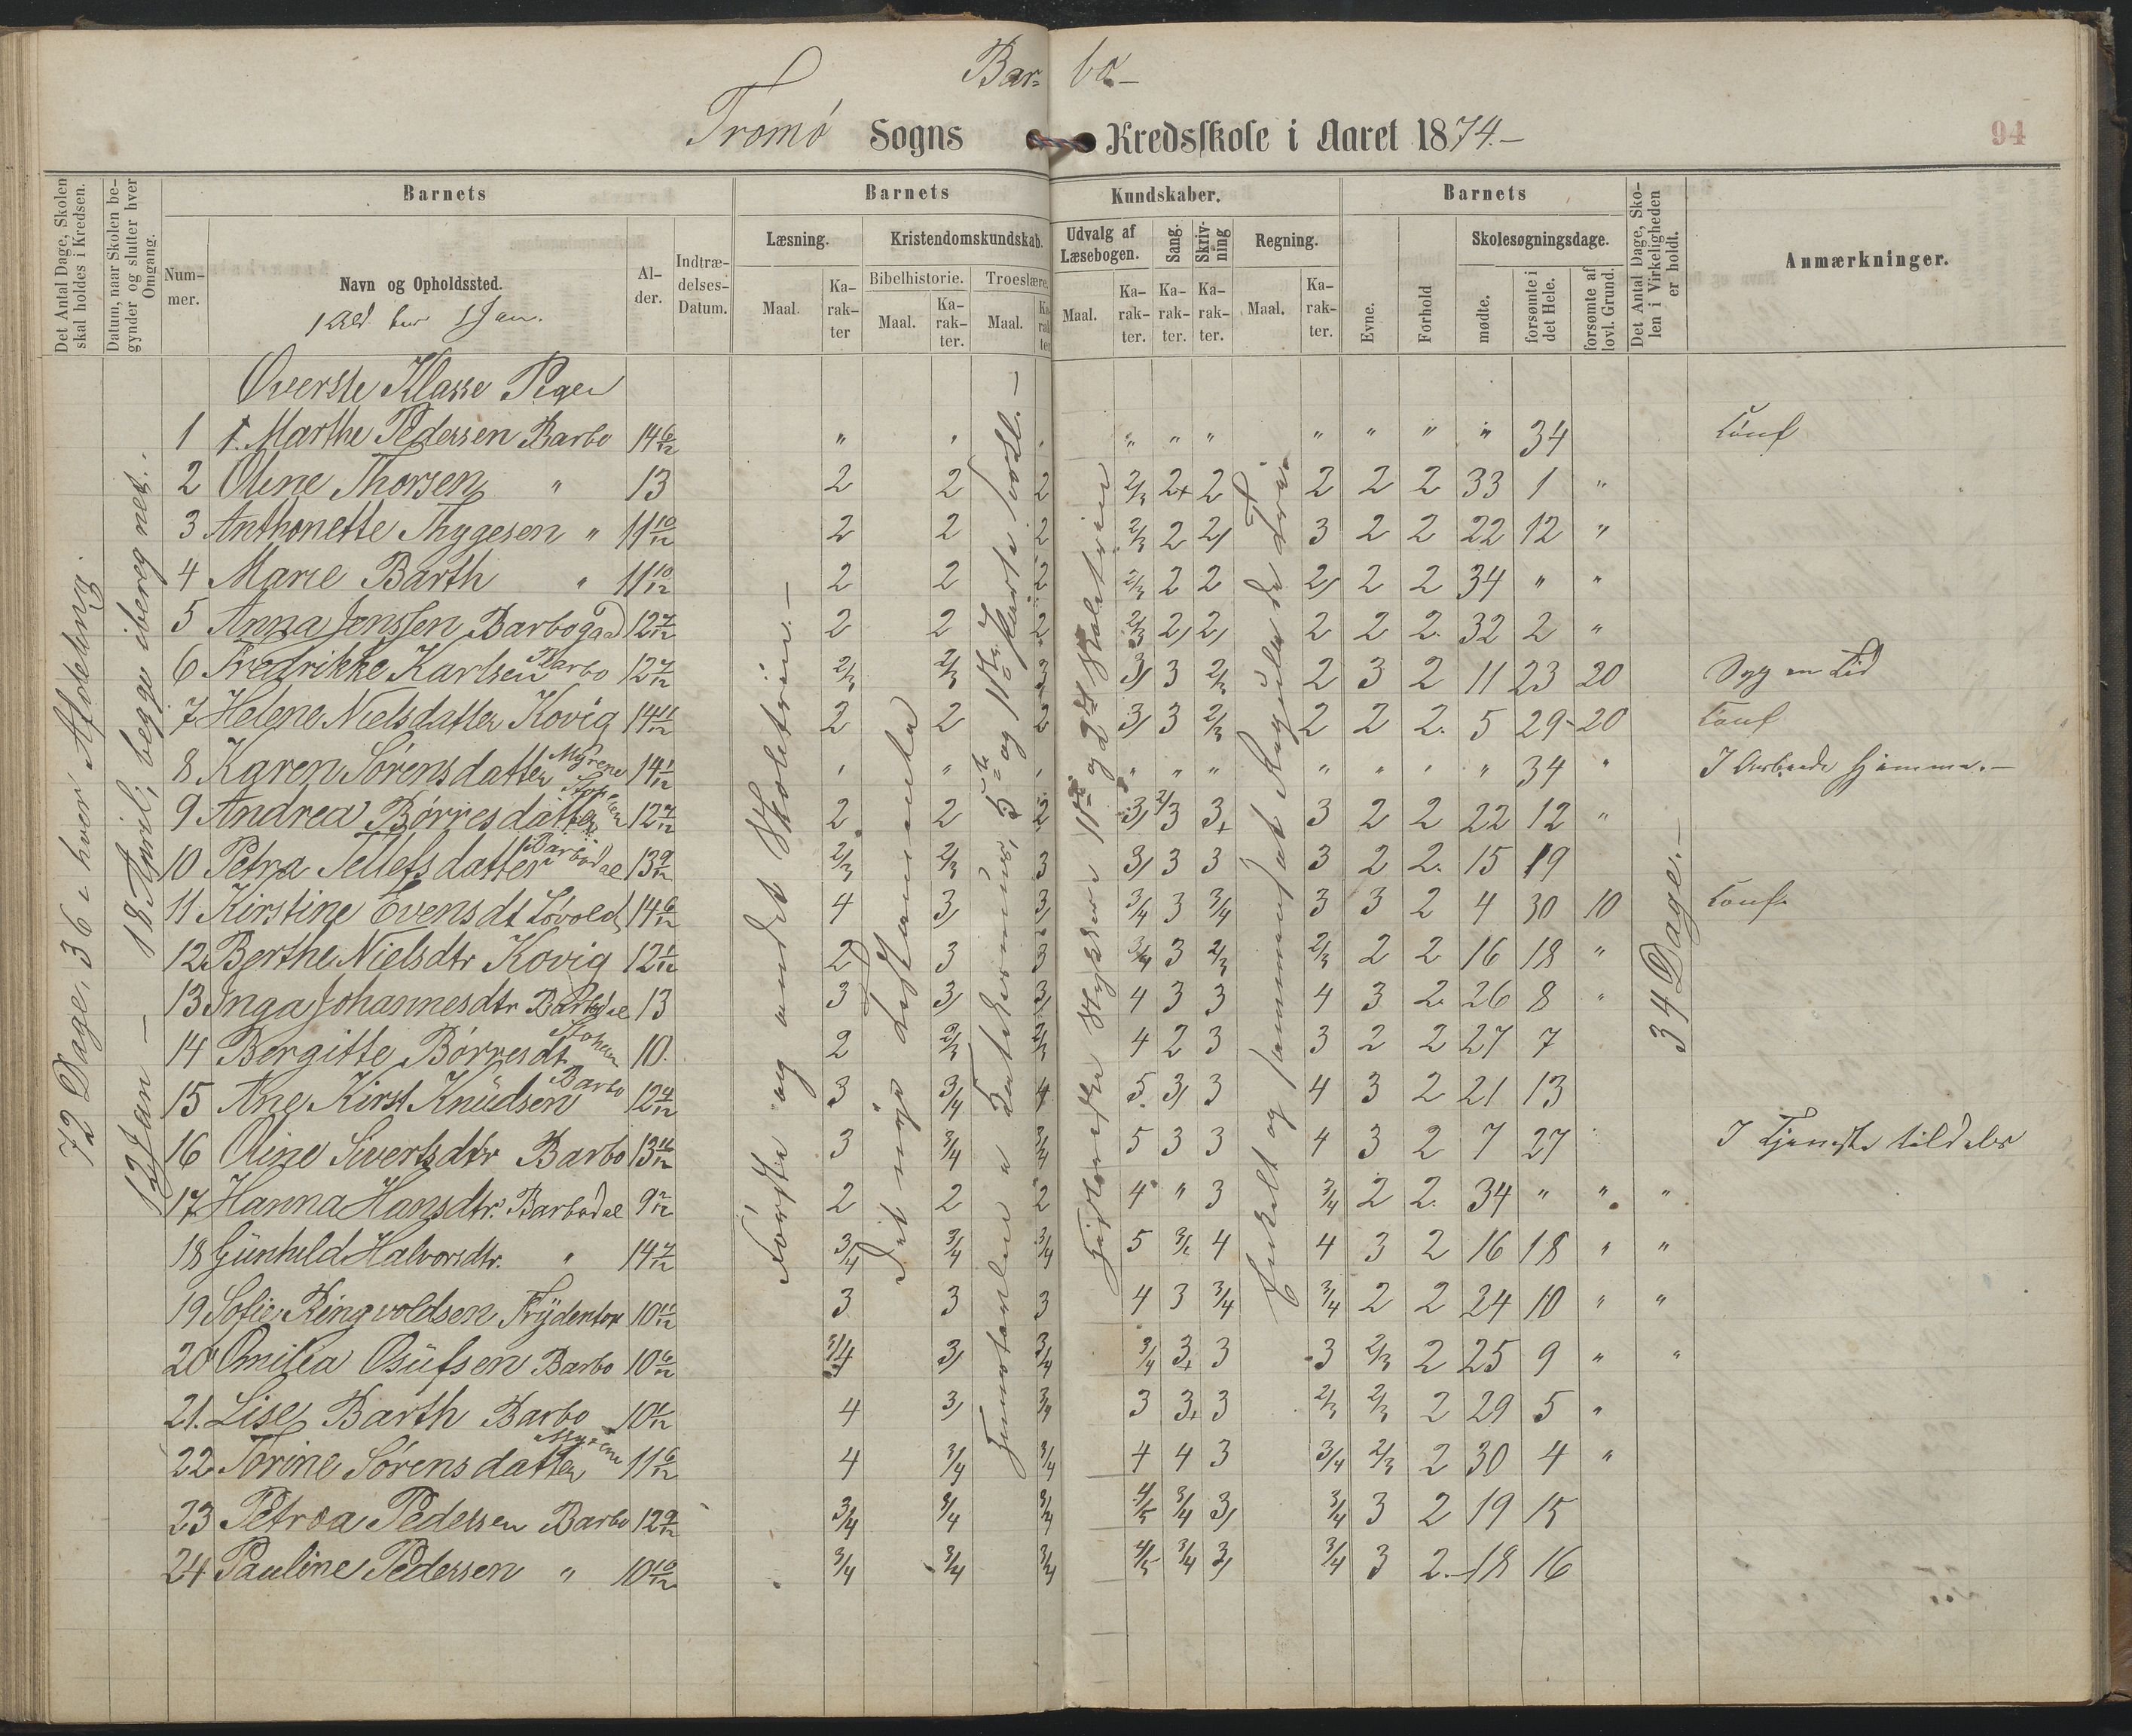 Bar- bo-
Tromø Sogns Kredsskole i Aaret 1874.-
94
Det Antal Dage, Skolen skal holdes i Kredsen.
Datum, naar Skolen begynder og slutter hver Omgang.
Barnets
Barnets
Kundskaber.
Barnets
Det Antal Dage, Skolen i Virkeligheden er holdt.
Anmærkninger.
Nummer.
Navn og Opholdssted.
Alder.
Indtrædelses-Datum.
Læsning.
Kristendomskundskab.
Udvalg af Læsebogen.
Sang.
Skrivning
Regning.
Evne.
Forhold
Skolesøgningsdage.
Bibelhistorie.
Troeslære.
Maal.
Karakter
Maal.
Karakter.
Maal.
Karakter
Maal.
Karakter.
Karakter.
Karakter.
Maal.
Karakter.
mødte.
forsømte i det Hele.
forsømte af lovl. Grund.
72 Dage, 36 i hver Afdeling.
12 Jan - 18 April, begge ibereg net.-
Første og andet Skoletrin.-
Det nye Testamente
34 Dage.-
Øverste Klasse Piger
1 1. Marthe Pedersen Barbo 14 6/12 " " " " " " " " " " 34 Conf
2 Oline Thorsen " 13 2 2 2 2/3 2+ 2 2 2 2 33 1 "
3 Anthonette Thygesen " 11 10/12 2 2 2 2/3 2 2/ 3 2 2 22 12 "
4 Marie Barth " 11 10/12 2 2 2 2/3 2 2 2/ 2 2 34 " "
5 Anna Jenssen Barbogad 12 7/12 2 2 2 2/3 2/ 2/ 2 2 2. 32 2 "
6 Fredrikke Karlsen Barbo 12 7/12 2/3 2/3 3 3/ 3 2/3 2 3 2 11 23 20 Syg en Tid
7 Helene Nielsdatter Kovig 14 11/12 2 2 2 3/ 3 2/3 2 2 2. 5 29- 20 Conf
8 Karen Sørensdatter Myrene 14 1/12 " " " " " " " " " " 34 " I Arbeide hjemme.-
9 Andrea Børresdatter 12 7/12 2 2 2 3/ 2/3 3+ 3 2 2 22 12 "
10 Petra Tellefsdatter Barbodal 13 9/12 2/3 2/3 3 3/ 3 3 3 2 2. 15 19
11 Kirstine Evensdt Løvold 14 6/12 4 3/ 3/ 3/4 3 3/4 3 3 2 4 30 10 Conf.
12 Berthe Nielsdtr Kovig 12 1/12 2 3 3 3/4 3 2/3 2/3 2 2 16 18 "
13 Inga Johannesdtr Barbodal 13 3 3/ 3/ 4 3 3 4 3 2. 26 8 "
14 Bergitte Børresdt 10. 2 2/3 2/3 4 2 3 3 2 2 27 7
15 Ane Kirst Knüdsen Barbo 12 9/12 3 3/4 4 5 3/ 3 4 3 2 21 13
16 Oline Sivertsdtr Barbo 13 11/12 3 3/4 3/4 5 3 3 4 3 2 7 27 I Tjeneste tildels
17 Hanna Hansdtr. Barbodal 9 2 2 2 4 " 3 3/4 2 2. 34 " " "
18 Günhild Halvorsdtr. " 14 7/12 3/4 3/4 3/4 5 4 4 3 2 16 18 " "
19 Sofie Ringvoldsen 10 11/12 3 3 3 4 3 3/4 3/4 2 2 24 10 " "
20 Omilia Osüfsen Barbo 10 6/12 3/4 3/ 3/4 3/4 3+ 3 3 2/3 2 25 9 " "
21. Lise Barth Barbo 10 1/12 4 3/ 3/4 3 3+ 3 2/3 2/3 2 29 5 "
22 Torine Sørensdatter Myrene 11 6/12 4 3/4 3/4 4 4 3 3/4 2/3 2 30 4 "
23 Petrea Pedersen Barbo 12 9/12 3/4 3/4 3/4 4/5 3/4 3/ 3/4 3 2 19 15
24 Pauline Pedersen " 10 10/12 3/4 3/4 3/4 4/5 3/4 3/ 3/4 3 2.- 18 16